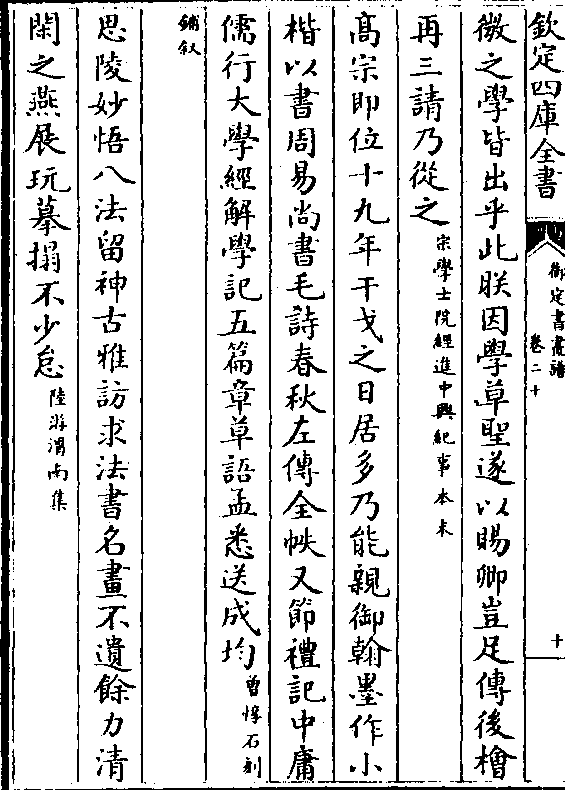 欽定四庫全書
御定書畫譜
卷二十
十
微之學皆出乎此朕因學草聖遂以賜卿豈足傳後檜
再三請乃從之宋學士院經進中興紀事本末
髙宗即位十九年干戈之日居多乃能親御翰墨作小
楷以書周易尚書毛詩春秋左傳全帙又節禮記中庸
儒行大學經解學記五篇章草語孟悉送成均曽惇石刻
鋪叙
思陵妙悟八法留神古雅訪求法書名畫不遺餘力清
閑之燕展玩摹搨不少怠陸游渭南集